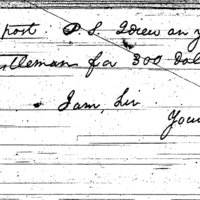 post. P.S. I drew on y
ntleman for 300 dol
I am, Sir
Your